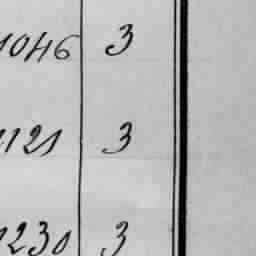 1046 3
1121 3
1230 3